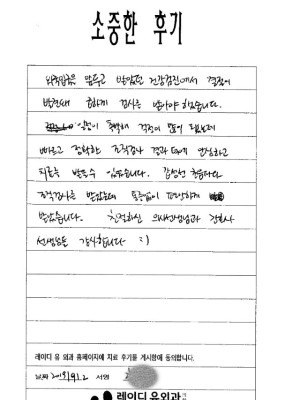 소중한 후기
앞두고 받았던 건강검진에서 결절이
발견돼 급하게 검사를 받아야 했습니다.
일정이 촉박해 걱정이 많이 됐는데
빠르고 정확한 조직검사 결과 덕에 안심하고
치료를 받을 수 있었습니다.
조직검사를 받았는데 통증없이 편안하게
받았습니다. 친절하신 의사선생님과 간호사
선생님들 감사합니다 :)
레이디 유 외과 홈페이지에 치료 후기를 게시함에 동의합니다.
날짜 서명
레이디 유외과